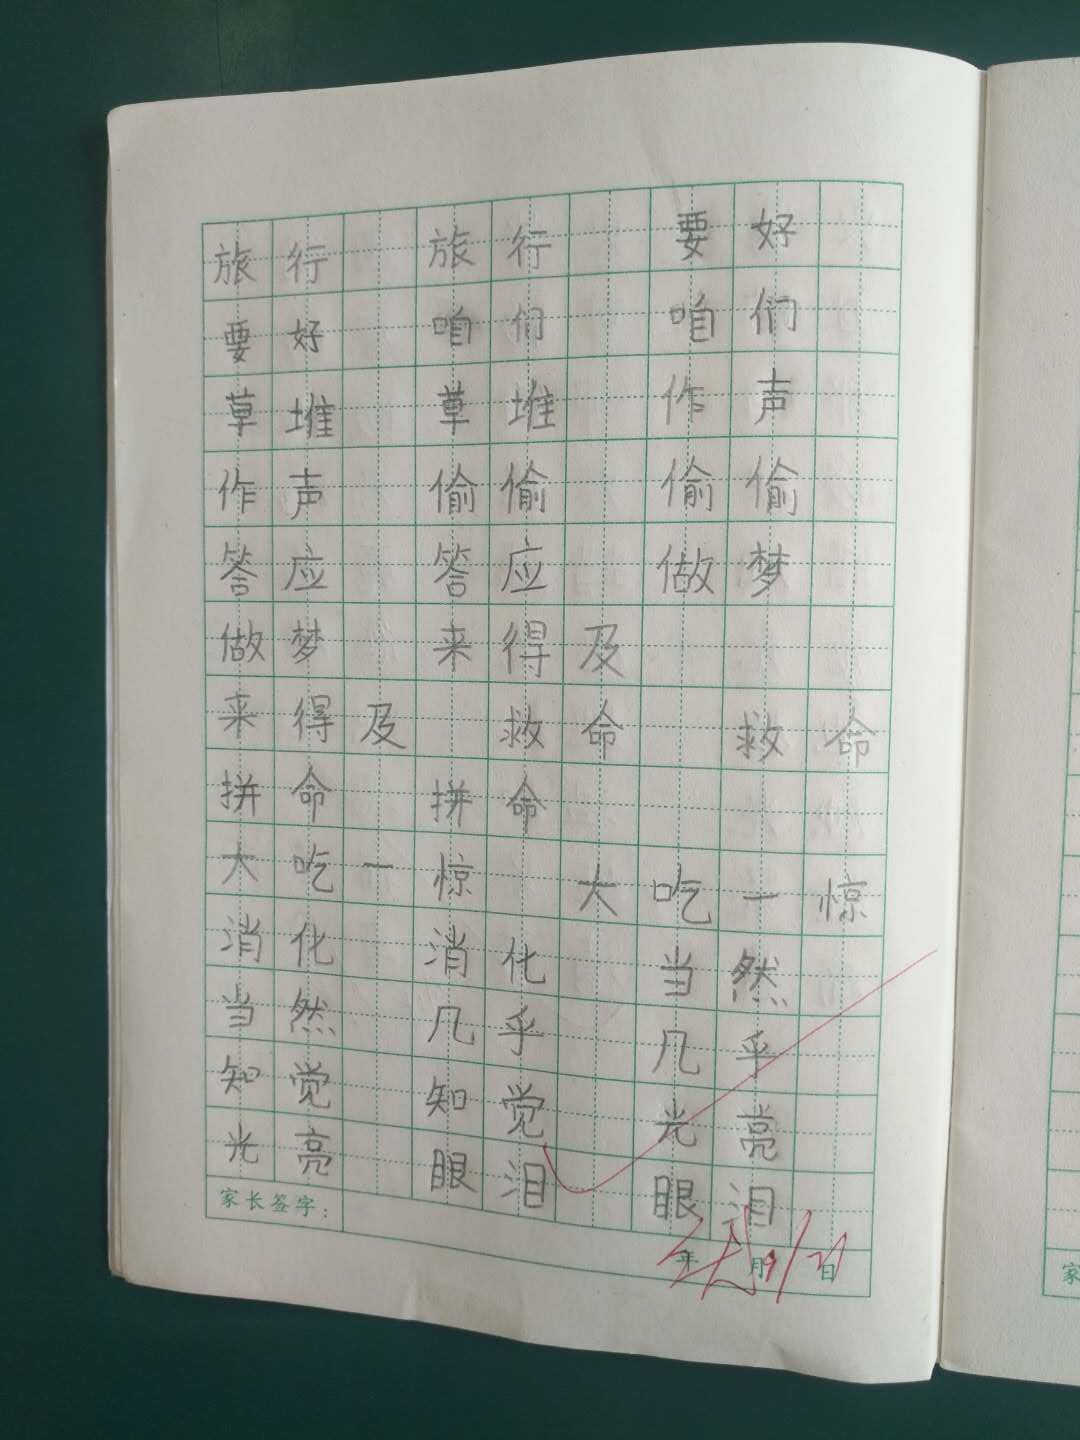 旅行 旅行 要好
要好 咱们 咱们
草堆 草堆 作声
作声 偷偷 偷偷
答应 答应 做梦
做梦 来得及
来得及 救命 救命
拼命 拼命
大吃一惊 大吃一惊
消化 消化 当然
当然 几乎 几乎
知觉 知觉 光亮
光亮 眼泪 眼泪
家长签字：
年 月 日
家